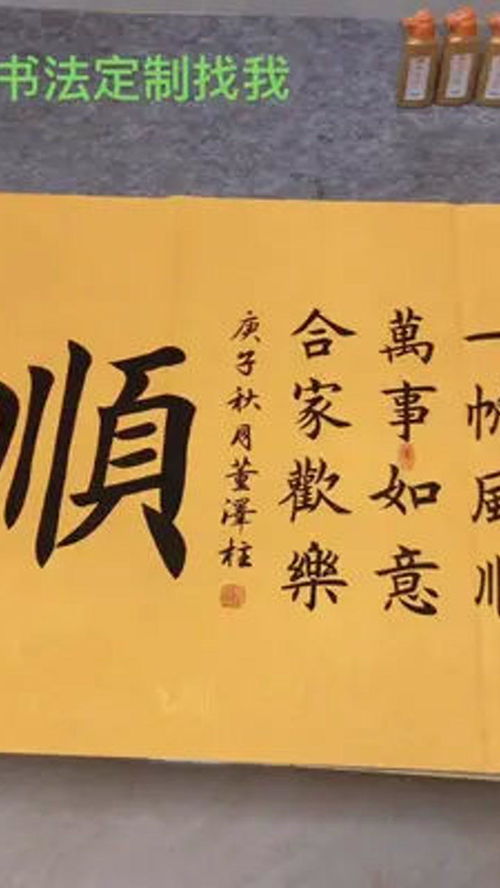 书法定制找我
一帆風順
萬事如意
合家歡樂
庚子秋月董澤柱
順